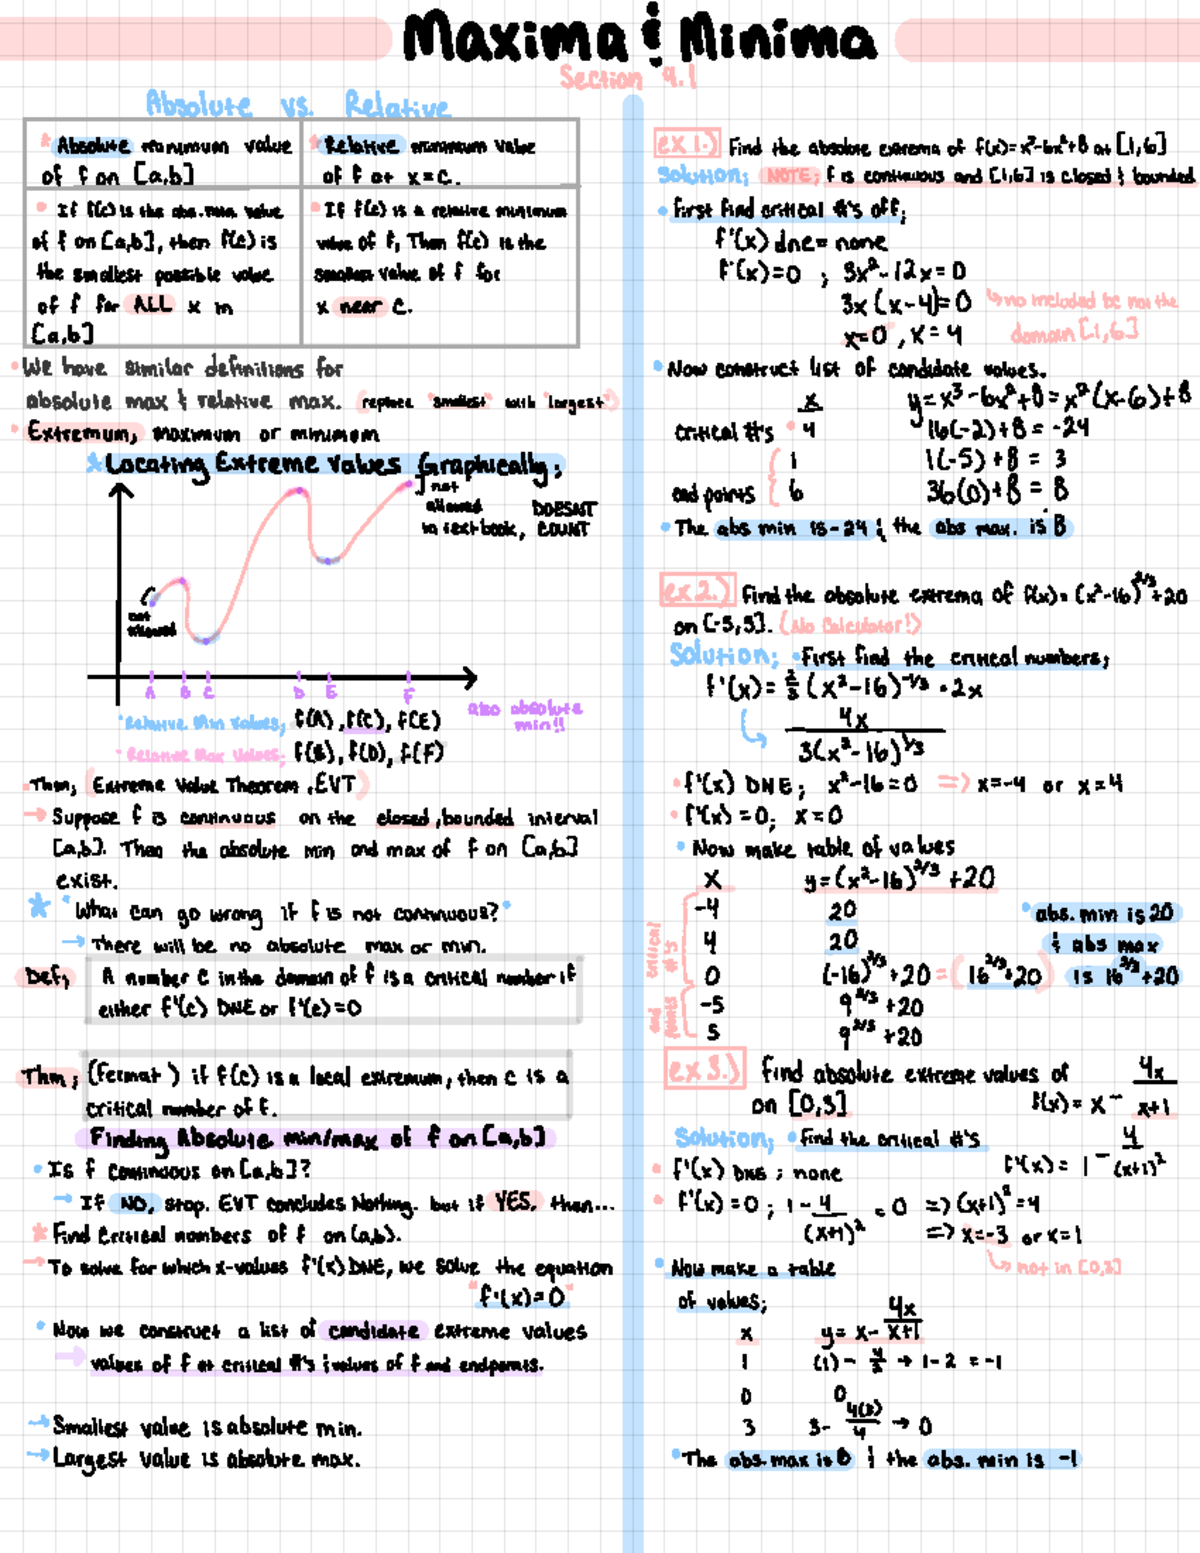 Maxima & Minima
Section 4.1
Absolute vs. Relative
* Absolute minimum value
of f on [a,b]
* Relative minimum value
of f at x=c.
• If f(c) is the abs. min value
of f on [a,b], then f(c) is
the smallest possible value
of f for ALL x in
[a,b]
• If f(c) is a relative minimum
value of f, Then f(c) is the
smallest value of f for
x near c.
• We have similar definitions for
absolute max & relative max. (replace "smallest" with "largest")
• Extremum, maximum or minimum
* Locating Extreme values Graphically;
not
allowed
in textbook,
DOESNT
COUNT
not
allowed
A B C D E F
also absolute
min!!
• Relative Min Values; f(A), f(C), f(E)
• Relative Max Values; f(B), f(D), f(F)
Thm, (Extreme Value Theorem, EVT)
→ Suppose f is continuous on the closed, bounded interval
[a,b]. Then the absolute min and max of f on [a,b]
exist.
* "What can go wrong if f is not continuous?"
→ There will be no absolute max or min.
Def, A number c in the domain of f is a critical number if
either f'(c) DNE or f'(c)=0
Thm; (Fermat) if f(c) is a local extremum, then c is a
critical number of f.
Finding Absolute min/max of f on [a,b]
• Is f continuous on [a,b]?
→ If NO, stop. EVT concludes Nothing. but if YES, then...
* Find Critical numbers of f on (a,b).
→ To solve for which x-values f'(x) DNE, we solve the equation
"f'(x)=0"
• Now we construct a list of candidate extreme values
→ values of f at critical #'s & values of f and endpoints.
→ Smallest value is absolute min.
→ Largest value is absolute max.
ex 1.) Find the absolute extrema of f(x)=x³-6x²+8 at [1,6]
Solution; NOTE; f is continuous and [1,6] is closed & bounded
• first find critical #'s off;
f'(x) dne = none
f'(x)=0 ; 3x²-12x=0
3x(x-4)=0
x=0, x=4
↳ no included bc not the
domain [1,6]
• Now construct list of candidate values.
x y=x³-6x²+8=x²(x-6)+8
critical #'s • 4 16(-2)+8 = -24
1 1(-5)+8 = 3
end points 6 36(0)+8 = 8
• The abs min is -24 & the abs max. is 8
ex 2.) Find the absolute extrema of f(x)=(x²-16)^2/3+20
on [-5,5]. (No Calculator!)
Solution; • First find the critical numbers;
f'(x)= 2/3 (x²-16)^-1/3 • 2x
↳ 4x / 3(x²-16)^1/3
• f'(x) DNE; x²-16=0 => x=-4 or x=4
• f'(x)=0; x=0
• Now make table of values
x y=(x²-16)^2/3+20
critical #'s
-4 20
4 20
0 (-16)^2/3+20 = (16^2/3+20)
end points
-5 9^2/3+20
5 9^2/3+20
• abs. min is 20
& abs max
is 16^2/3+20
ex 3.) find absolute extreme values of
on [0,3] f(x)= x - 4x/x+1
Solution; • find the critical #'s f'(x)= 1 - 4/(x+1)²
• f'(x) DNE ; none
• f'(x)=0 ; 1 - 4/(x+1)² = 0 => (x+1)²=4
=> x=-3 or x=1
↳ not in [0,3]
• Now make a table
of values;
x y= x - 4x/x+1
1 (1) - 4/2 → 1-2 = -1
0 0
3 3- 4(3)/4 → 0
• The abs. max is 0 & the abs. min is -1